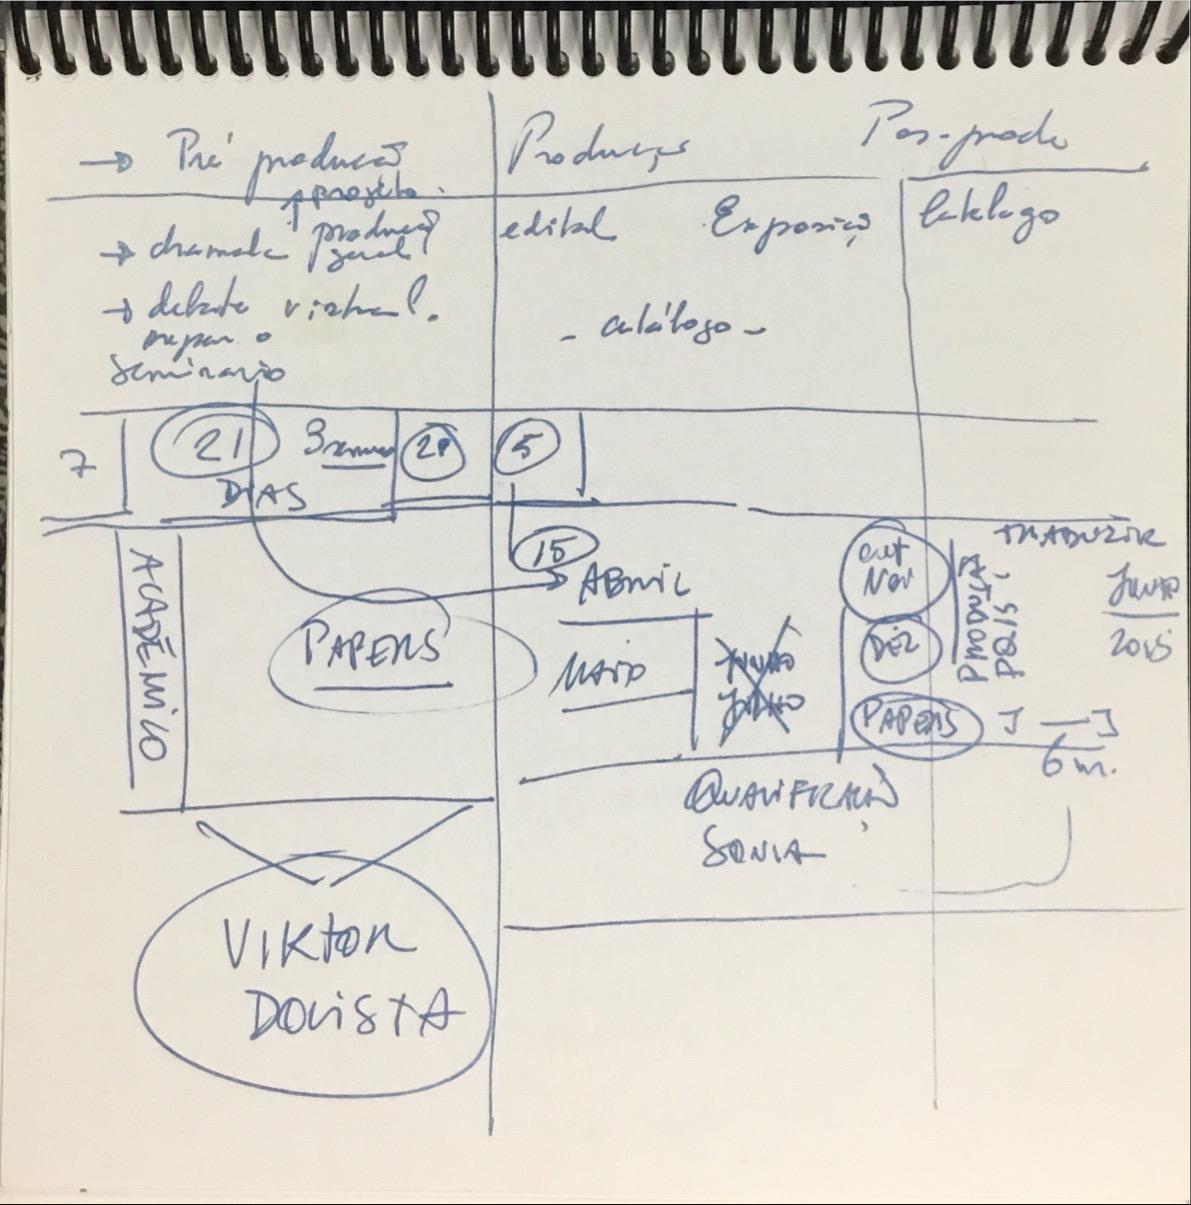 → Pré produção
Produção
Pos-produ
projeto
→ chamada produção
geral
edital Exposição Catalogo
→ debate virtual.
- catálogo -
seminario
7 21 3 semanas 28 5
DIAS
15
ABRIL
out
Nov
TRADUZIR
JUNHO
2015
ACADÊMICO
PAPERS
MAIO
JUNHO
JULHO
DEZ
PRODUÇÃO
PAPERS J — J
6 m.
QUALIFICAÇÃO
SONIA
VIKTOR